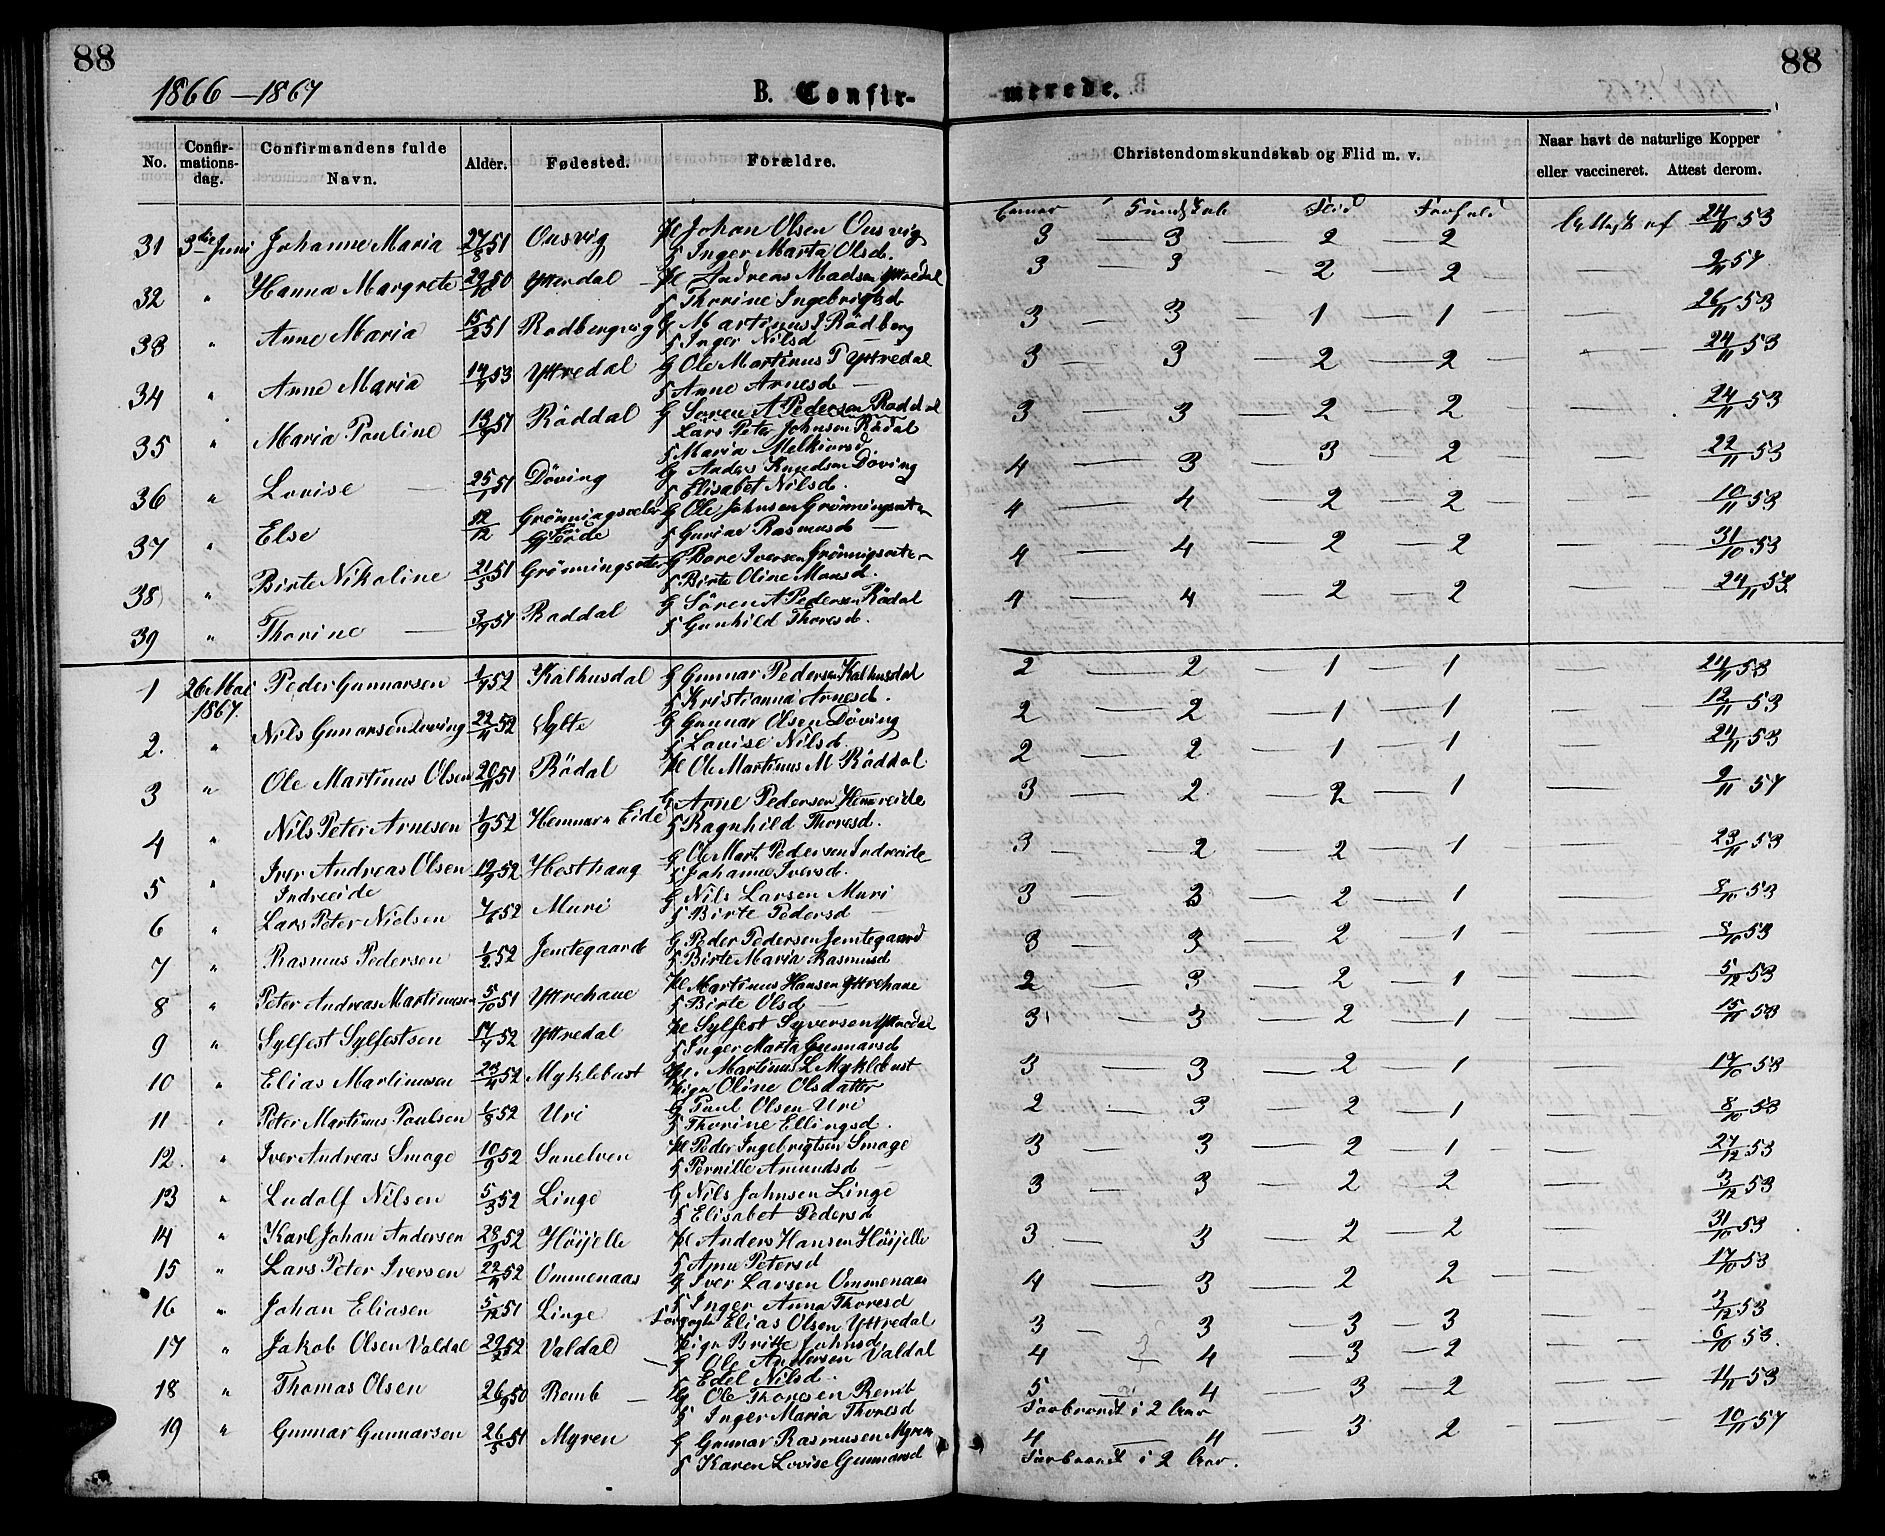 88
88
1866—1867
B. Confir-
-merede.
No.
Confir-mations-dag.
Confirmandens fulde Navn.
Alder.
Fødested.
Forældre.
Christendomskundskab og Flid m. v.
Naar havt de naturlige Kopper
eller vaccineret. Attest derom.
Evner Kundskab Flid Forhold
31 3die Juni Johanne Maria 27/8 51 Onsvig Johan Olsen Onsvig 3 — 3 — 2 — 2 Attest af 24/11 53
Inger Marta Olsd.
32 " Hanna Margrete 29/10 50 Yttredal Andreas Madsen Yttredal 3 — 3 - 2 — 2
Thorine Ingebrigtsd
33 " Anne Maria 15/2 51 Rødbergvig G Martinus I Rödberg 3 — 3 — 1 — 1 — 26/11 53
Inger Nilsd
34 " Anne Maria Yttredal G Ole Martinus T Yttredal 3 — 3 — 2 — 2 — 24/11 53
Anne Arnesd —
35 " Maria Pauline 13/9 51 Röddal G Søren A Pedersen Raddal 3 — 3 — 2 — 2 — 24/11 53
Lars Peter Johnsen Rødal
Maria Melkiorsd
36 " Lovise — 25/1 51 Döving G Anders Knudsen Døving 4 — 3 — 3 — 2 — 22/11 53
Elisabet Nilsd.
37 " Else 12/12 Grönningsæter G Ole Johnsen Grönningsæter 4 — 4 — 2 — 2 — 10/11 53
Eide Gurine Rasmusd —
38 " Birte Nikoline 21/5 51 Grönningsæter G Bare Iversen Grönnigsæter 4 — 4 — 2 — 2 — 31/10 53
Birte Oline Monsd.
39 " Thorine — 3/9 51 Raddal G Sören A Pedersen Rödal 4 — 4 — 2 — 2 — 24/11 53.
Gunhild Thoresd.
1 26 Mai 1867. Peder Gunnarsen Kalhusdal G Gunnar Pedersen Kalhusdal 2 — 2 — 1 — 1 — 24/11 53
Kristianna Arnesd.
2. " Nils Gunarsen Döving 22/11 52 Sylte G Gunnar Olsen Döving 2 — 2 — 1 — 1 — 12/11 53
Lovise Nilsd
3 " Ole Martinus Olsen 20/11 51 Rödal Ole Martinus M Röddal 2 — 2 — 1 — 1 — 24/11 53
4 " Nils Peter Arnesen 1/9 52 Hemmar Eide G Arne Pedersen Hemreide 3 — 2 — 2 — 1 —
Ragnhild Thoresd.
5 " Iver Andreas Olsen Indreeide 19/9 52 Hesthaug G Ole Mart. Pedersen Indreeide 3 — 2 — 2 — 1 — 23/11 53
Johanne Iversd.
6 " Lars Peter Nielsen 7/6 52 Muri G Nils Larsen Muri 3 — 3 — 2 — 1 — 8/10 53
Birte Pedersd —
7 " Rasmus Pedersen 1/2 52 Jemtegaard G Peder Pedersen Jemtegaard 3 — 3 — 2 — 1 — 8/10 53
Birte Maria Rasmusd
8 " Peter Andreas Martinusen 5/10 51 Yttrehaue Martinus Hansen Yttrehaue 2 — 3 — 2 — 1 — 5/12 53
Birte Olsd —
9 " Sylfest Sylfestsen 17/7 52 Yttredal Sylfest Syversen Yttredal 3 — 3 — 2 — 1 — 15/11 53
Inger Marta Gunnarsd
10 " Elias Martinusen 23/4 52 Myklebust Martinus L Myklebust 3 — 3 — 2 — 1 — 17/10 53
Pigen Oline Olsdatter
11 " Peter Martinus Paulsen 1/8 52 Uri G Paul Olsen Uri 2 — 3 — 2 — 1 — 8/10 53
Thorine Ellingsd.
12. " Iver Andreas Smoge 10/9 52 Sunelven Peder Ingebrigtsen Smoge 3 — 3 — 2 — 1 — 27/12 53
Pernille Amundsd —
13 " Ludolf Nilsen 5/3 52 Linge G Nils Johnsen Linge 3 — 3 — 2 — 2 — 3/12 53
Elisabet Pedersd
14 " Karl Johan Andersen 28/9 52 Höijelle Anders Hansen Höijelle 3 — 3 — 2 — 2 — 31/10 53
Anne Petersd
15 " Lars Peter Iversen Ommenaas G Iver Larsen Ommenaas 4 — 3 — 2 — 2 — 17/10 53
Inger Anna Thoresd
16 " Johan Eliasen 5/12 51 Linge Elias Olsen Yttredal 3 — 3 — 3 — 3 — 3/12 53
Pigen Britte Johnsd
17 " Jakob Olsen Valdal 29/2 52 Valdal — G Ole Andersen Valdal 4 — 4 — 3 — 2 — 6/10 53.
Edel Nilsd.
18 " Thomas Olsen 26/9 50 Remb — G Ole Thoresen Remb 5 — 4 — 3 — 2 — 53
Inger Maria Thoresd Forbrandt i 2 Aar
19 " Gunnar Gunnarsen 26/5 51 Myren G Gunnar Rasmusen Myren 4 — 4 — 3 — 2 —
Karen Lovise Gunnarsd Forbrandt i 2 Aar.